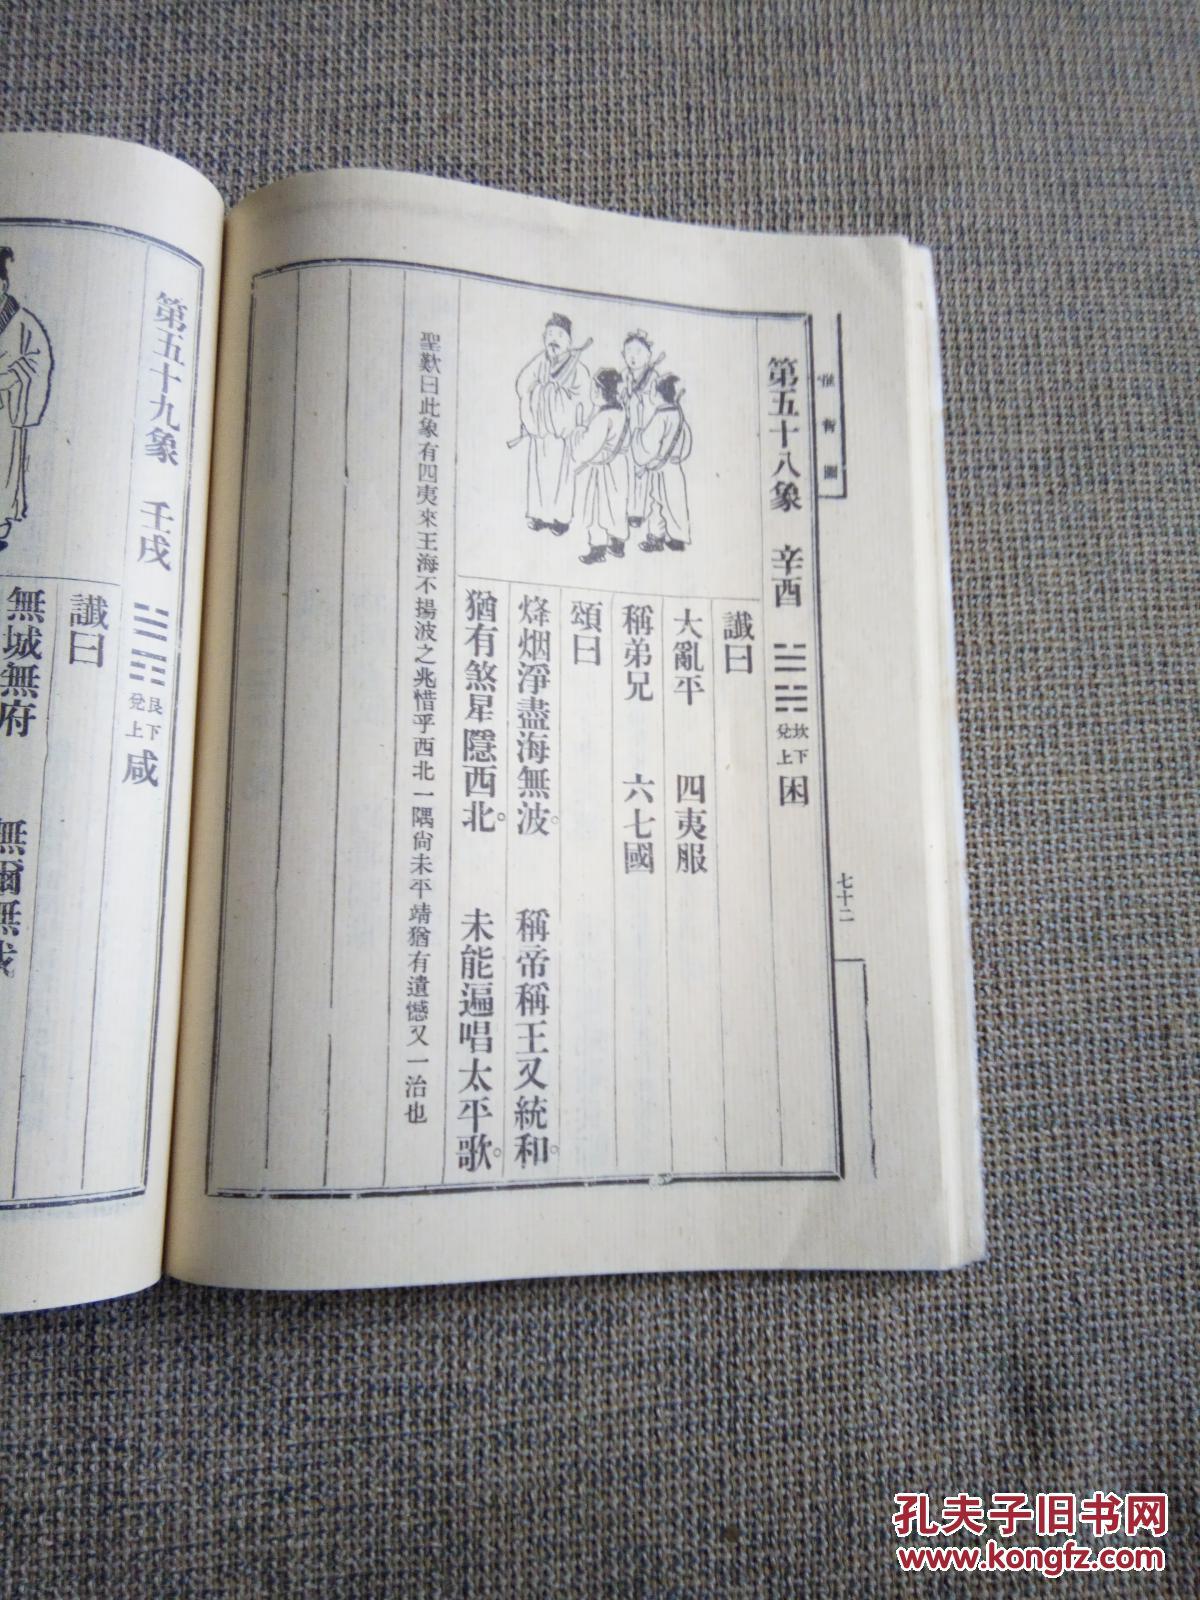 推背圖
七十二
第五十八象 辛酉 坎下兌上 困
讖曰
大亂平 四夷服
稱弟兄 六七國
頌曰
烽烟淨盡海無波。 稱帝稱王又統和。
猶有煞星隱西北。 未能遍唱太平歌。
聖歎曰此象有四夷來王海不揚波之兆惜乎西北一隅尙未平靖猶有遺憾又一治也
第五十九象 壬戌 艮下兌上 咸
讖曰
無城無府 無爾無
孔夫子旧书网
www.kongfz.com